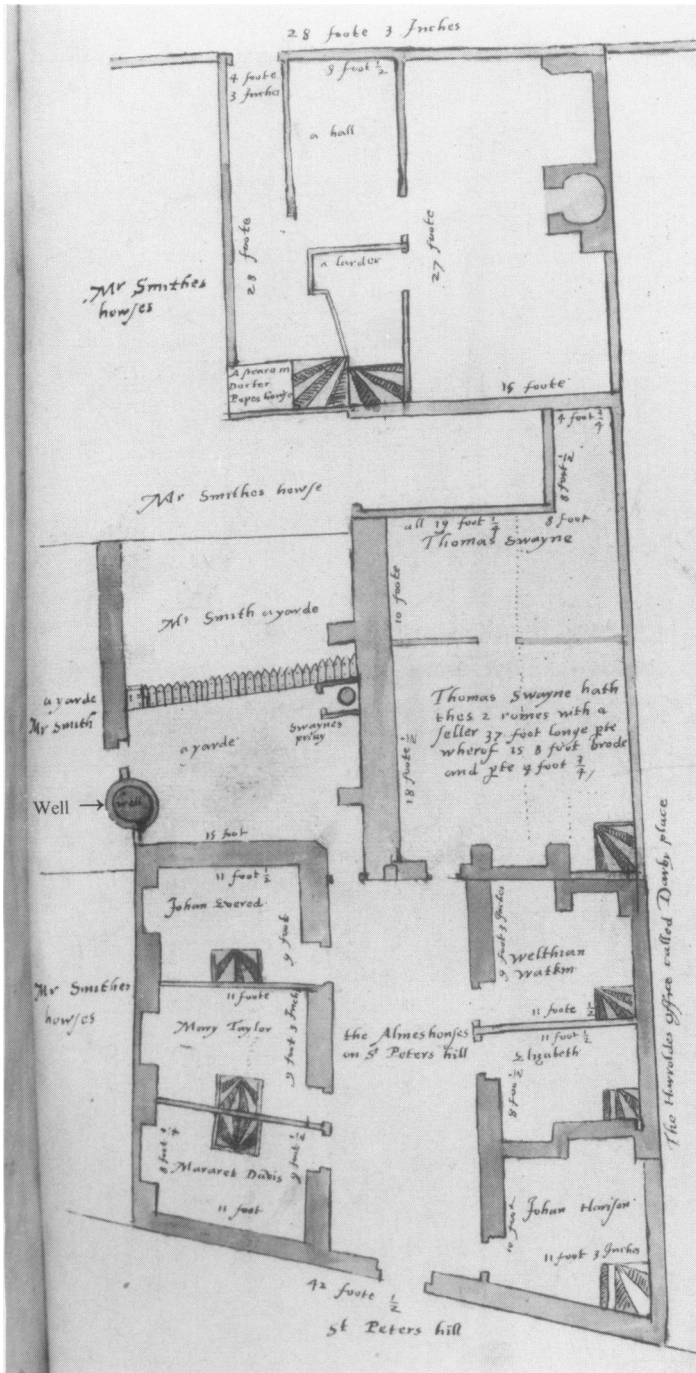 28 foote 3 Inches
4 foote
3 Inches
9 foot 1/2
a hall
28 foote
27 foote
a larder
Mr Smithes
howses
A stearo m
Docter
Popes howse
15 foote
4 foot 3/4
8 foot 1/2
Mr Smithes howse
all 19 foot 1/4
8 foot
Thomas Swayne
10 foote
Mr Smith a yarde
a yarde
Mr Smith
Swaynes
privy
a yarde
Thomas Swayne hath
thes 2 romes with a
seller 37 foot longe pte
wherof is 8 foot brode
and pte 9 foot 3/4
18 foote 1/2
Well →
well
15 foot
11 foot 1/2
Johan Evered
9 foot
9 foot 3 Inches
Welthian
Watkin
11 foote
11 foote 1/2
11 foot 1/2
Mr Smithes
howses
Mary Taylor
9 foot 3 Inch
the Almeshouses
on St Peters hill
Elizabeth
8 foot 1/2
8 foot 1/4
9 foot 1/2
Mararet Davis
11 foot
10 foot
Johan Harison
11 foot 3 Inches
The Harroldes office called Darby place
42 foote 1/2
St Peters hill